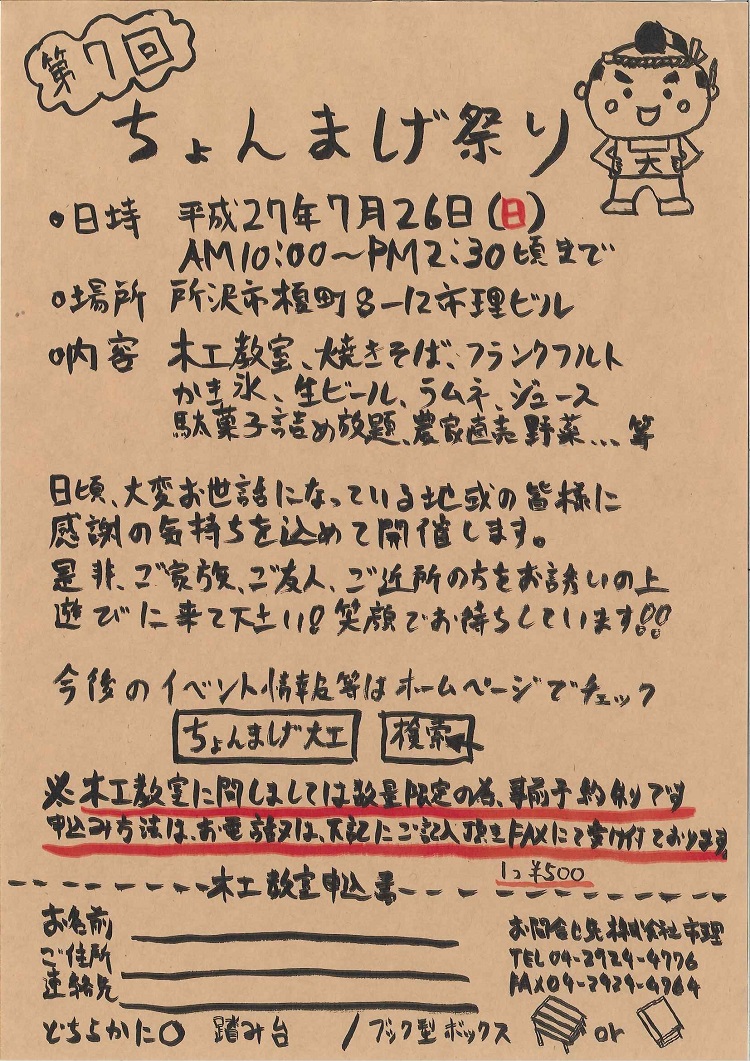 第7回
ちょんまげ祭り
大
•日時 平成27年7月26日(日)
AM10:00〜PM2:30頃まで
•場所 所沢市榎町8-12市理ビル
•内容 木工教室、焼きそば、フランクフルト
かき氷、生ビール、ラムネ、ジュース
駄菓子詰め放題、農家直売野菜...等
日頃、大変お世話になっている地域の皆様に
感謝の気持ちを込めて開催します。
是非、ご家族、ご友人、ご近所の方をお誘いの上
遊びに来て下さい!笑顔でお待ちしています!!
今後のイベント情報等はホームページでチェック
ちょんまげ大工 検索
※木工教室に関しましては数量限定の為、事前予約制です
申込み方法は、お電話又は、下記にご記入頂きFAXにて受け付ております。
1コ¥500
木工教室申込書
お名前
ご住所
連絡先
どちらかに○ 踏み台 / ブック型ボックス
お問合せ先 株式会社市理
TEL 04-2924-4776
FAX 04-2924-4764
or